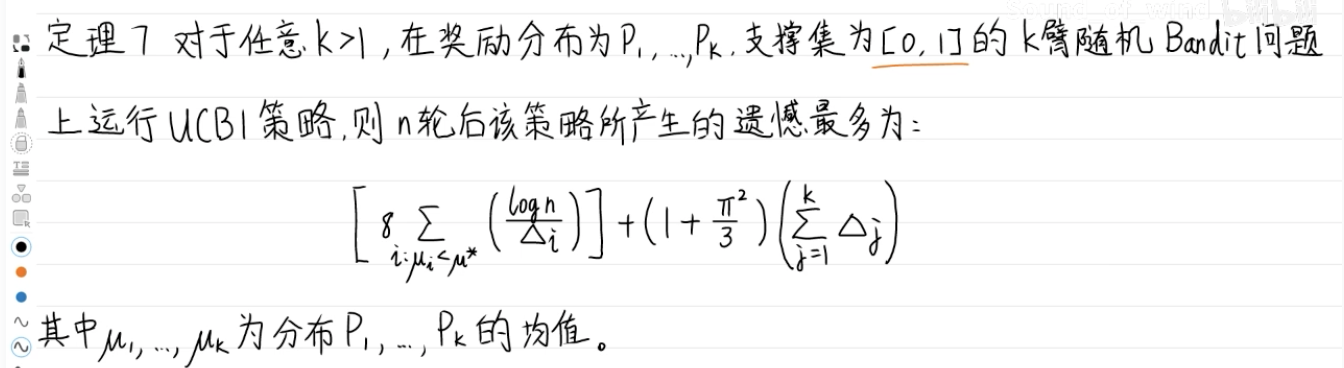 定理7 对于任意k>1,在奖励分布为P₁,…,Pₖ.支撑集为[0,1]的k臂随机Bandit问题
上运行UCB1策略,则n轮后该策略所产生的遗憾最多为:
[8 ∑_{i:μᵢ<μ*} (log n / Δᵢ)] + (1 + π²/3)(∑_{j=1}^{k} Δⱼ)
其中μ₁,…,μₖ为分布P₁,…,Pₖ的均值。